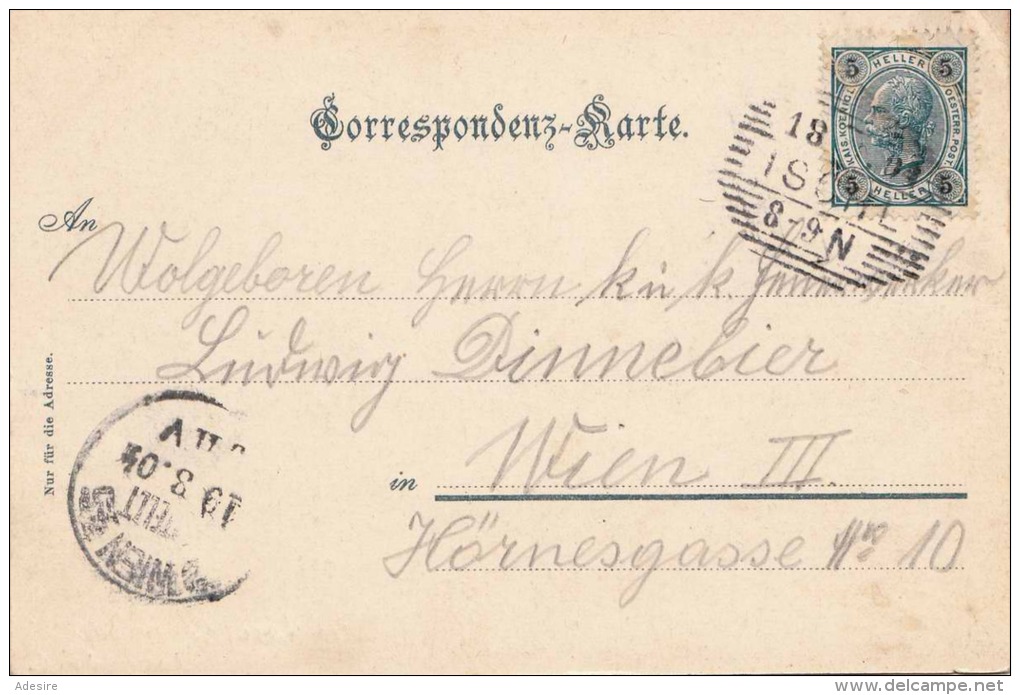 Correspondenz-Karte.
5 HELLER 5
KAIS. KOENIGL. OESTERR. POST.
5 HELLER 5
18
ISCHL
8-9N
An
Wolgeboren Herrn k. u. k.
Ludwig Dinnebier
Wien III.
in
Hörnesgasse Nro 10
Nur für die Adresse.
19 8.04
WIEN
Adesire
delcampe.net